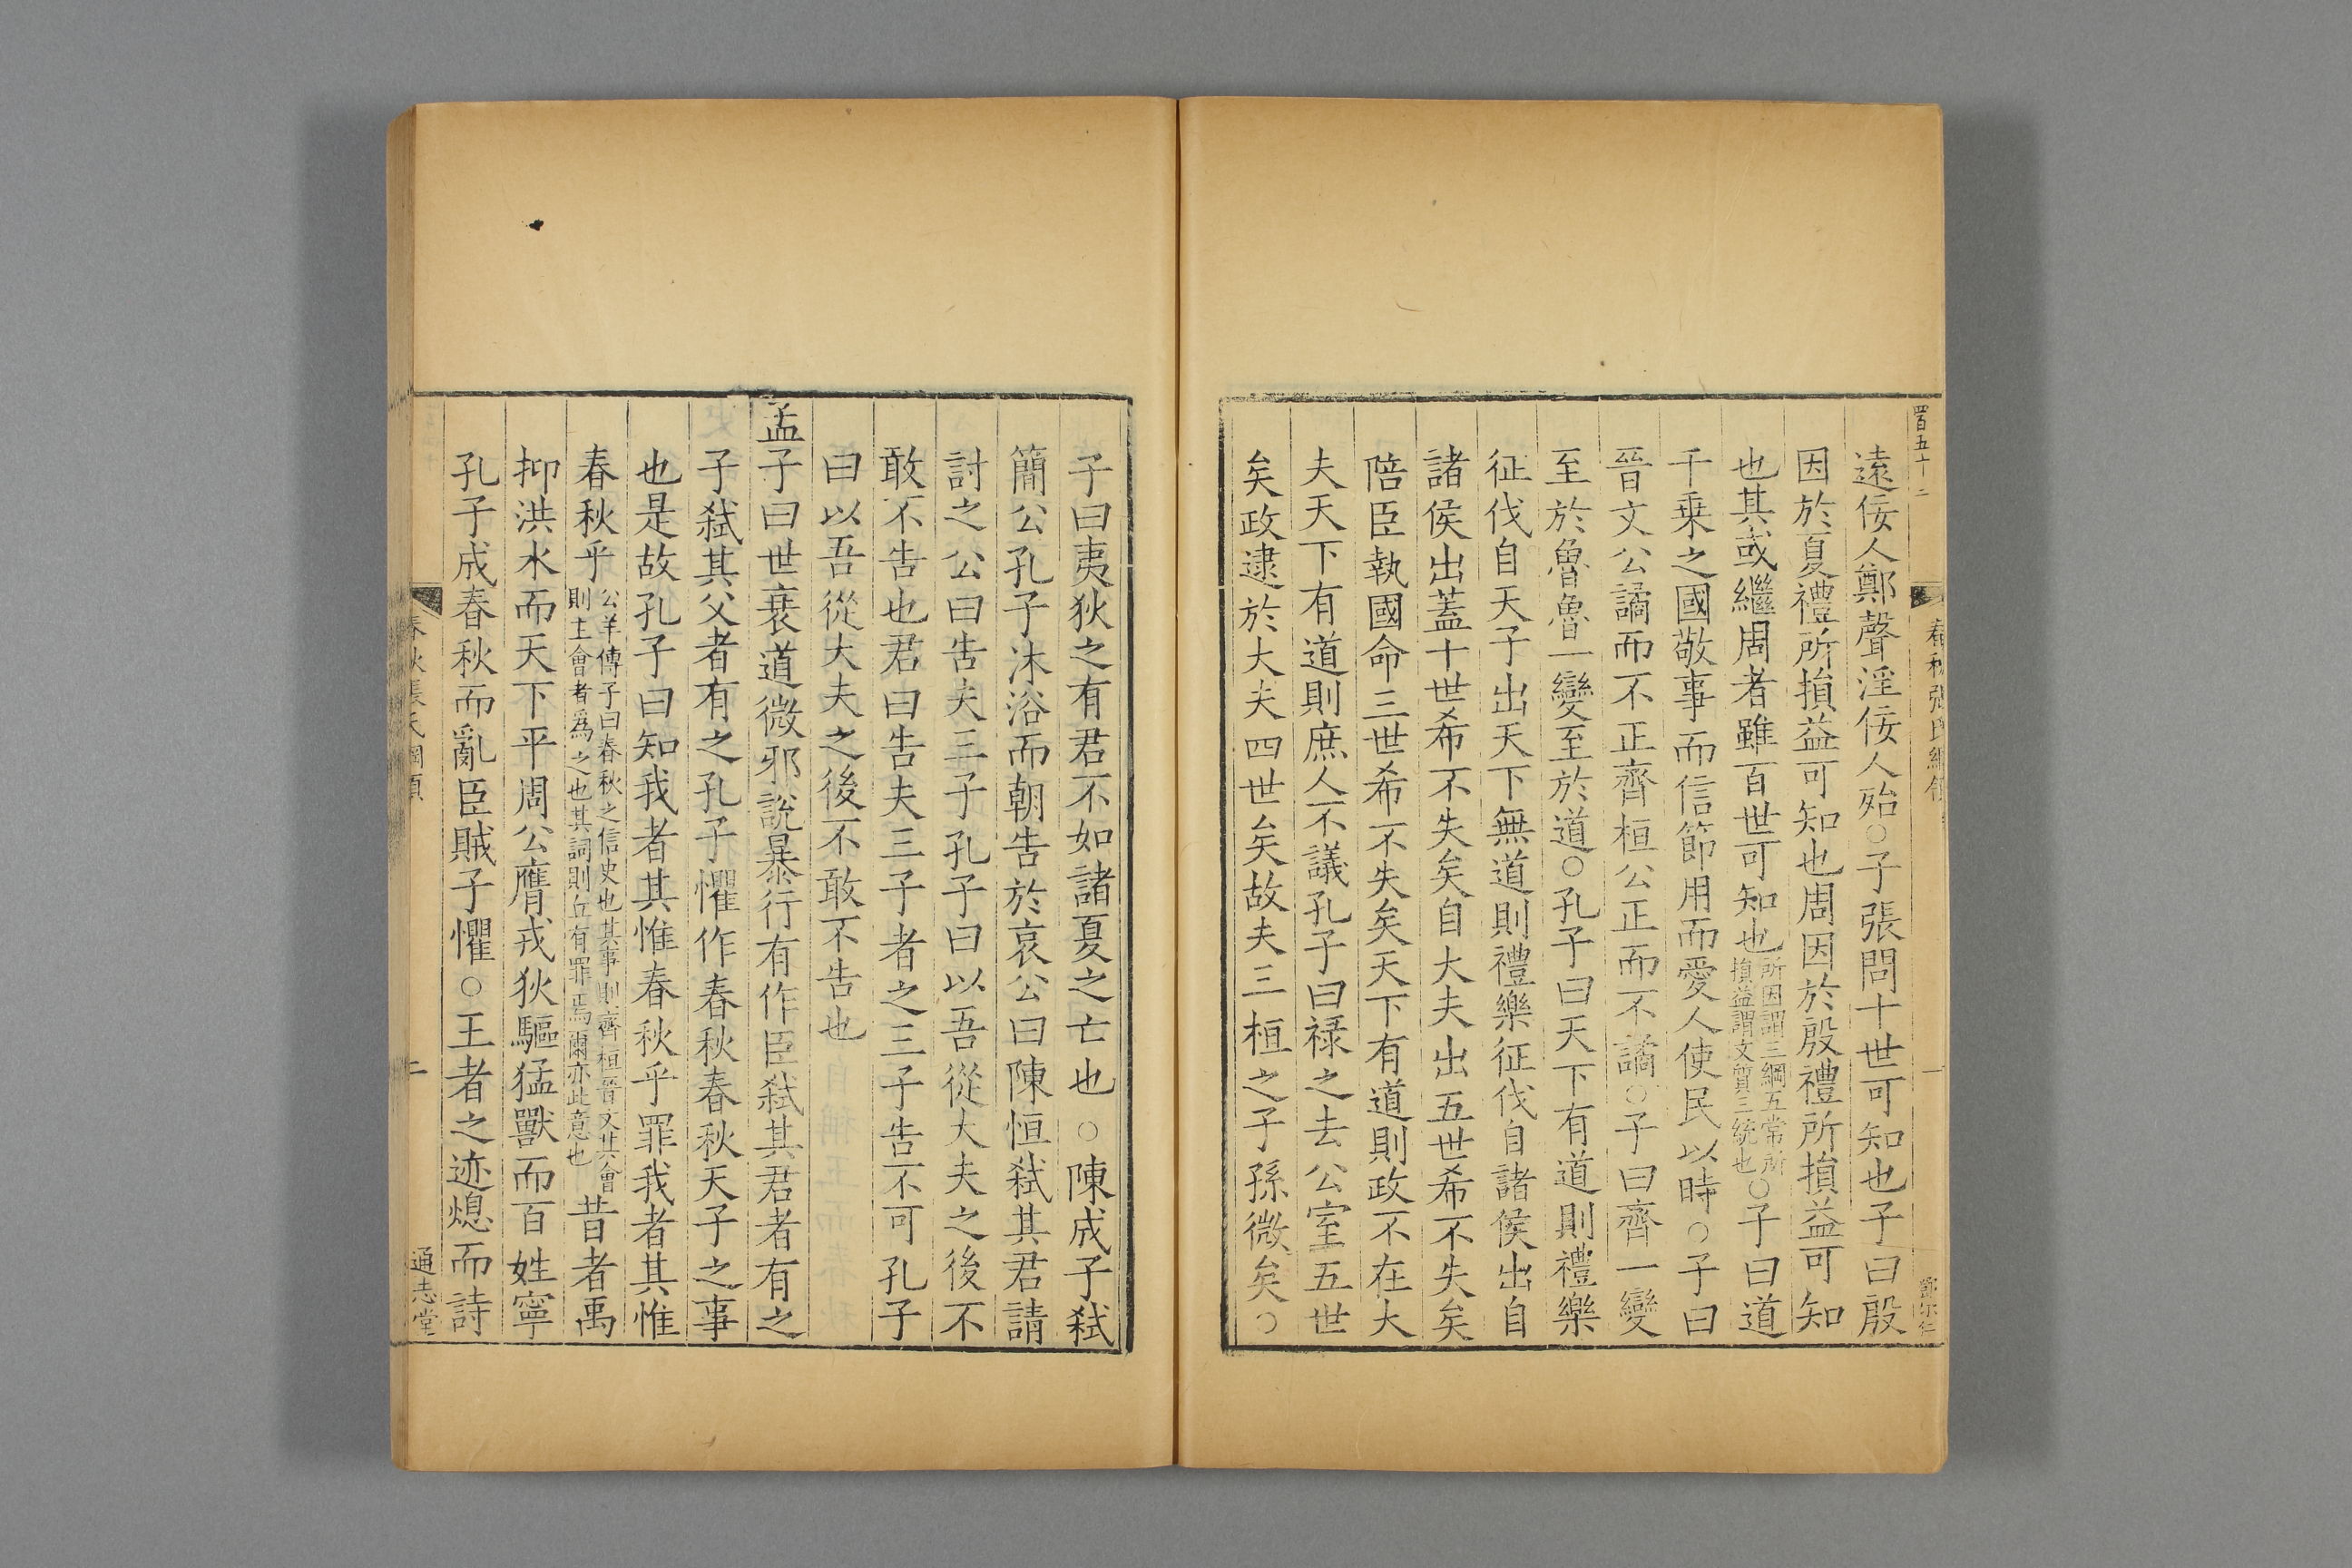 遠佞人鄭聲淫佞人殆○子張問十世可知也子曰殷
因於夏禮所損益可知也周因於殷禮所損益可知
也其或繼周者雖百世可知也所因謂三綱五常所損益謂文質三統也○子曰道
千乗之國敬事而信節用而愛人使民以時○子曰
晉文公譎而不正齊桓公正而不譎○子曰齊一變
至於魯魯一變至於道○孔子曰天下有道則禮樂
征伐自天子出天下無道則禮樂征伐自諸侯出自
諸侯出蓋十世希不失矣自大夫出五世希不失矣
陪臣執國命三世希不失矣天下有道則政不在大
夫天下有道則庶人不議孔子曰禄之去公室五世
矣政逮於大夫四世矣故夫三桓之子孫微矣○
子曰夷狄之有君不如諸夏之亡也○陳成子弑
簡公孔子沐浴而朝告於哀公曰陳恒弑其君請
討之公曰告夫三子孔子曰以吾從大夫之後不
敢不告也君曰告夫三子者之三子告不可孔子
曰以吾從大夫之後不敢不告也
孟子曰世衰道微邪說暴行有作臣弑其君者有之
子弑其父者有之孔子懼作春秋春秋天子之事
也是故孔子曰知我者其惟春秋乎罪我者其惟
春秋乎公羊傳子曰春秋之信史也其事則齊桓晉文其會則主會者爲之也其詞則丘有罪焉爾亦此意也昔者禹
抑洪水而天下平周公膺戎狄驅猛獸而百姓寧
孔子成春秋而亂臣賊子懼○王者之迹熄而詩
春秋張氏綱領
二
通志堂